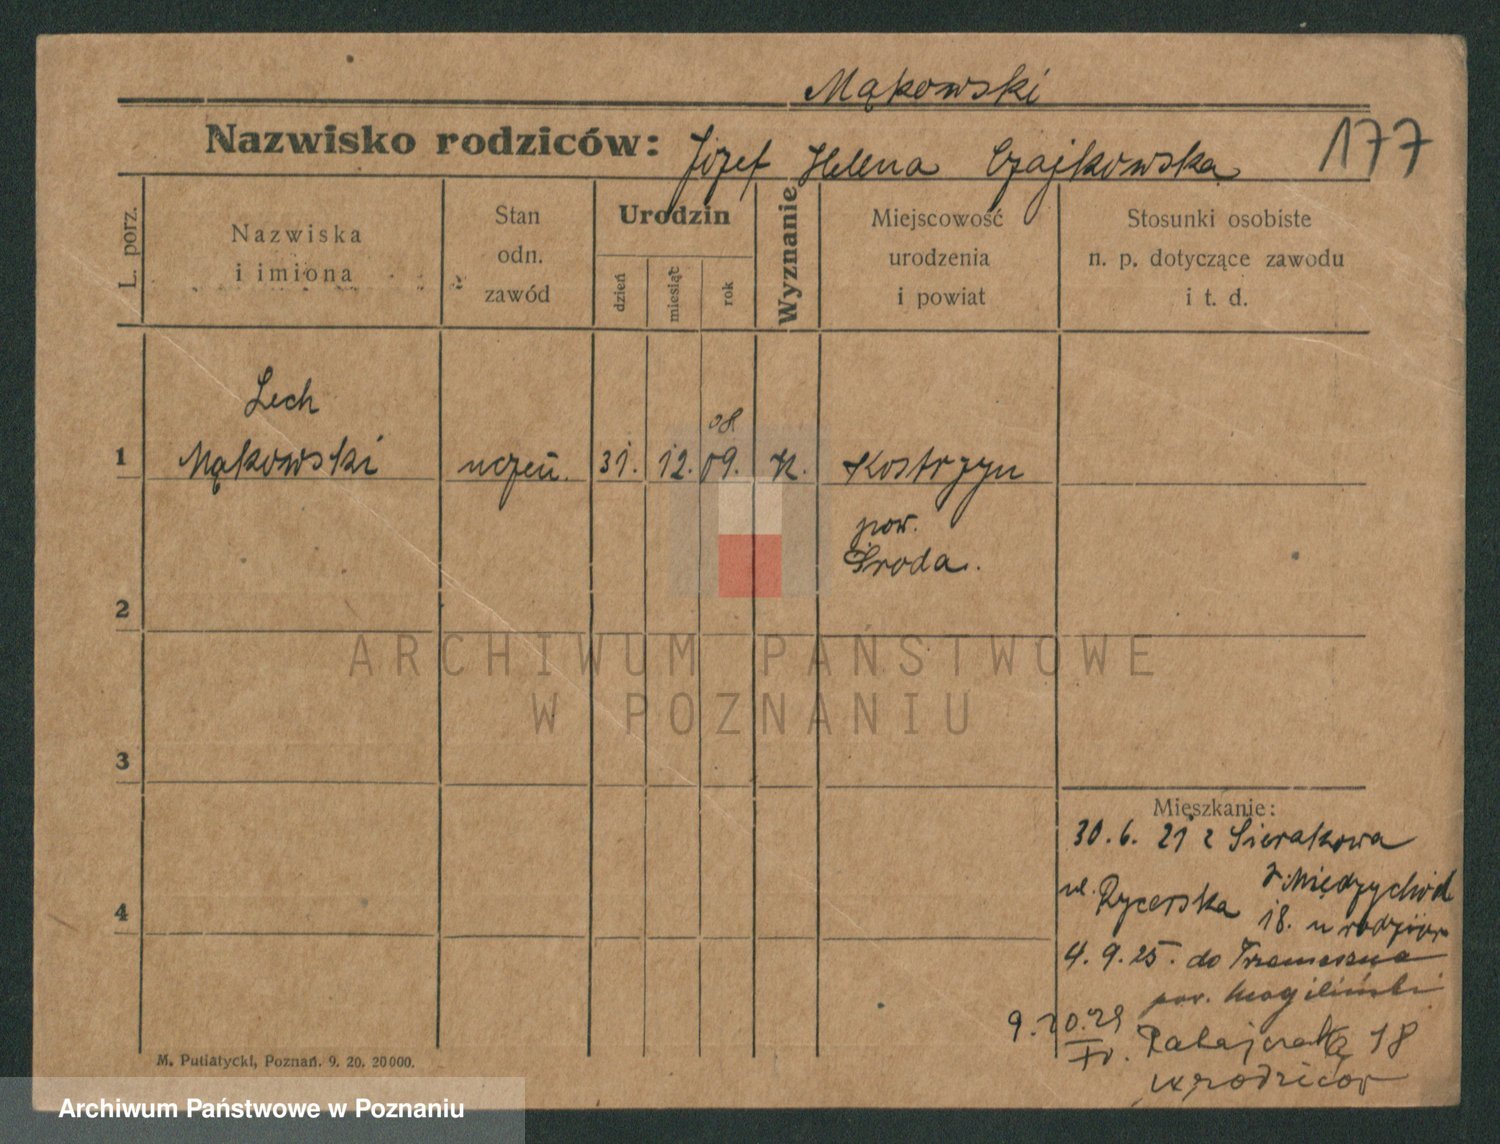 Mąkowski
Nazwisko rodziców: Józef Helena Czajkowska 177
L. porz.
Nazwiska
i imiona
Stan
odn.
zawód
Urodzin
dzień
miesiąt
rok
Wyznanie
Miejscowość
urodzenia
i powiat
Stosunki osobiste
n. p. dotyczące zawodu
i t. d.
Lech
08.
1 Mąkowski uczeń. 31. 12. 09. K. Kostrzyn
pow.
Środa.
2
3
4
ARCHIWUM PAŃSTWOWE
W POZNANIU
Mieszkanie:
30.6.21 z Sierakowa
Międzychód
ul. Rycerska
18. u
4.9.25. do Trzemeszna
pow. Mogiliński
9.
18
M. Putiatycki, Poznań. 9. 20. 20000.
Archiwum Państwowe w Poznaniu